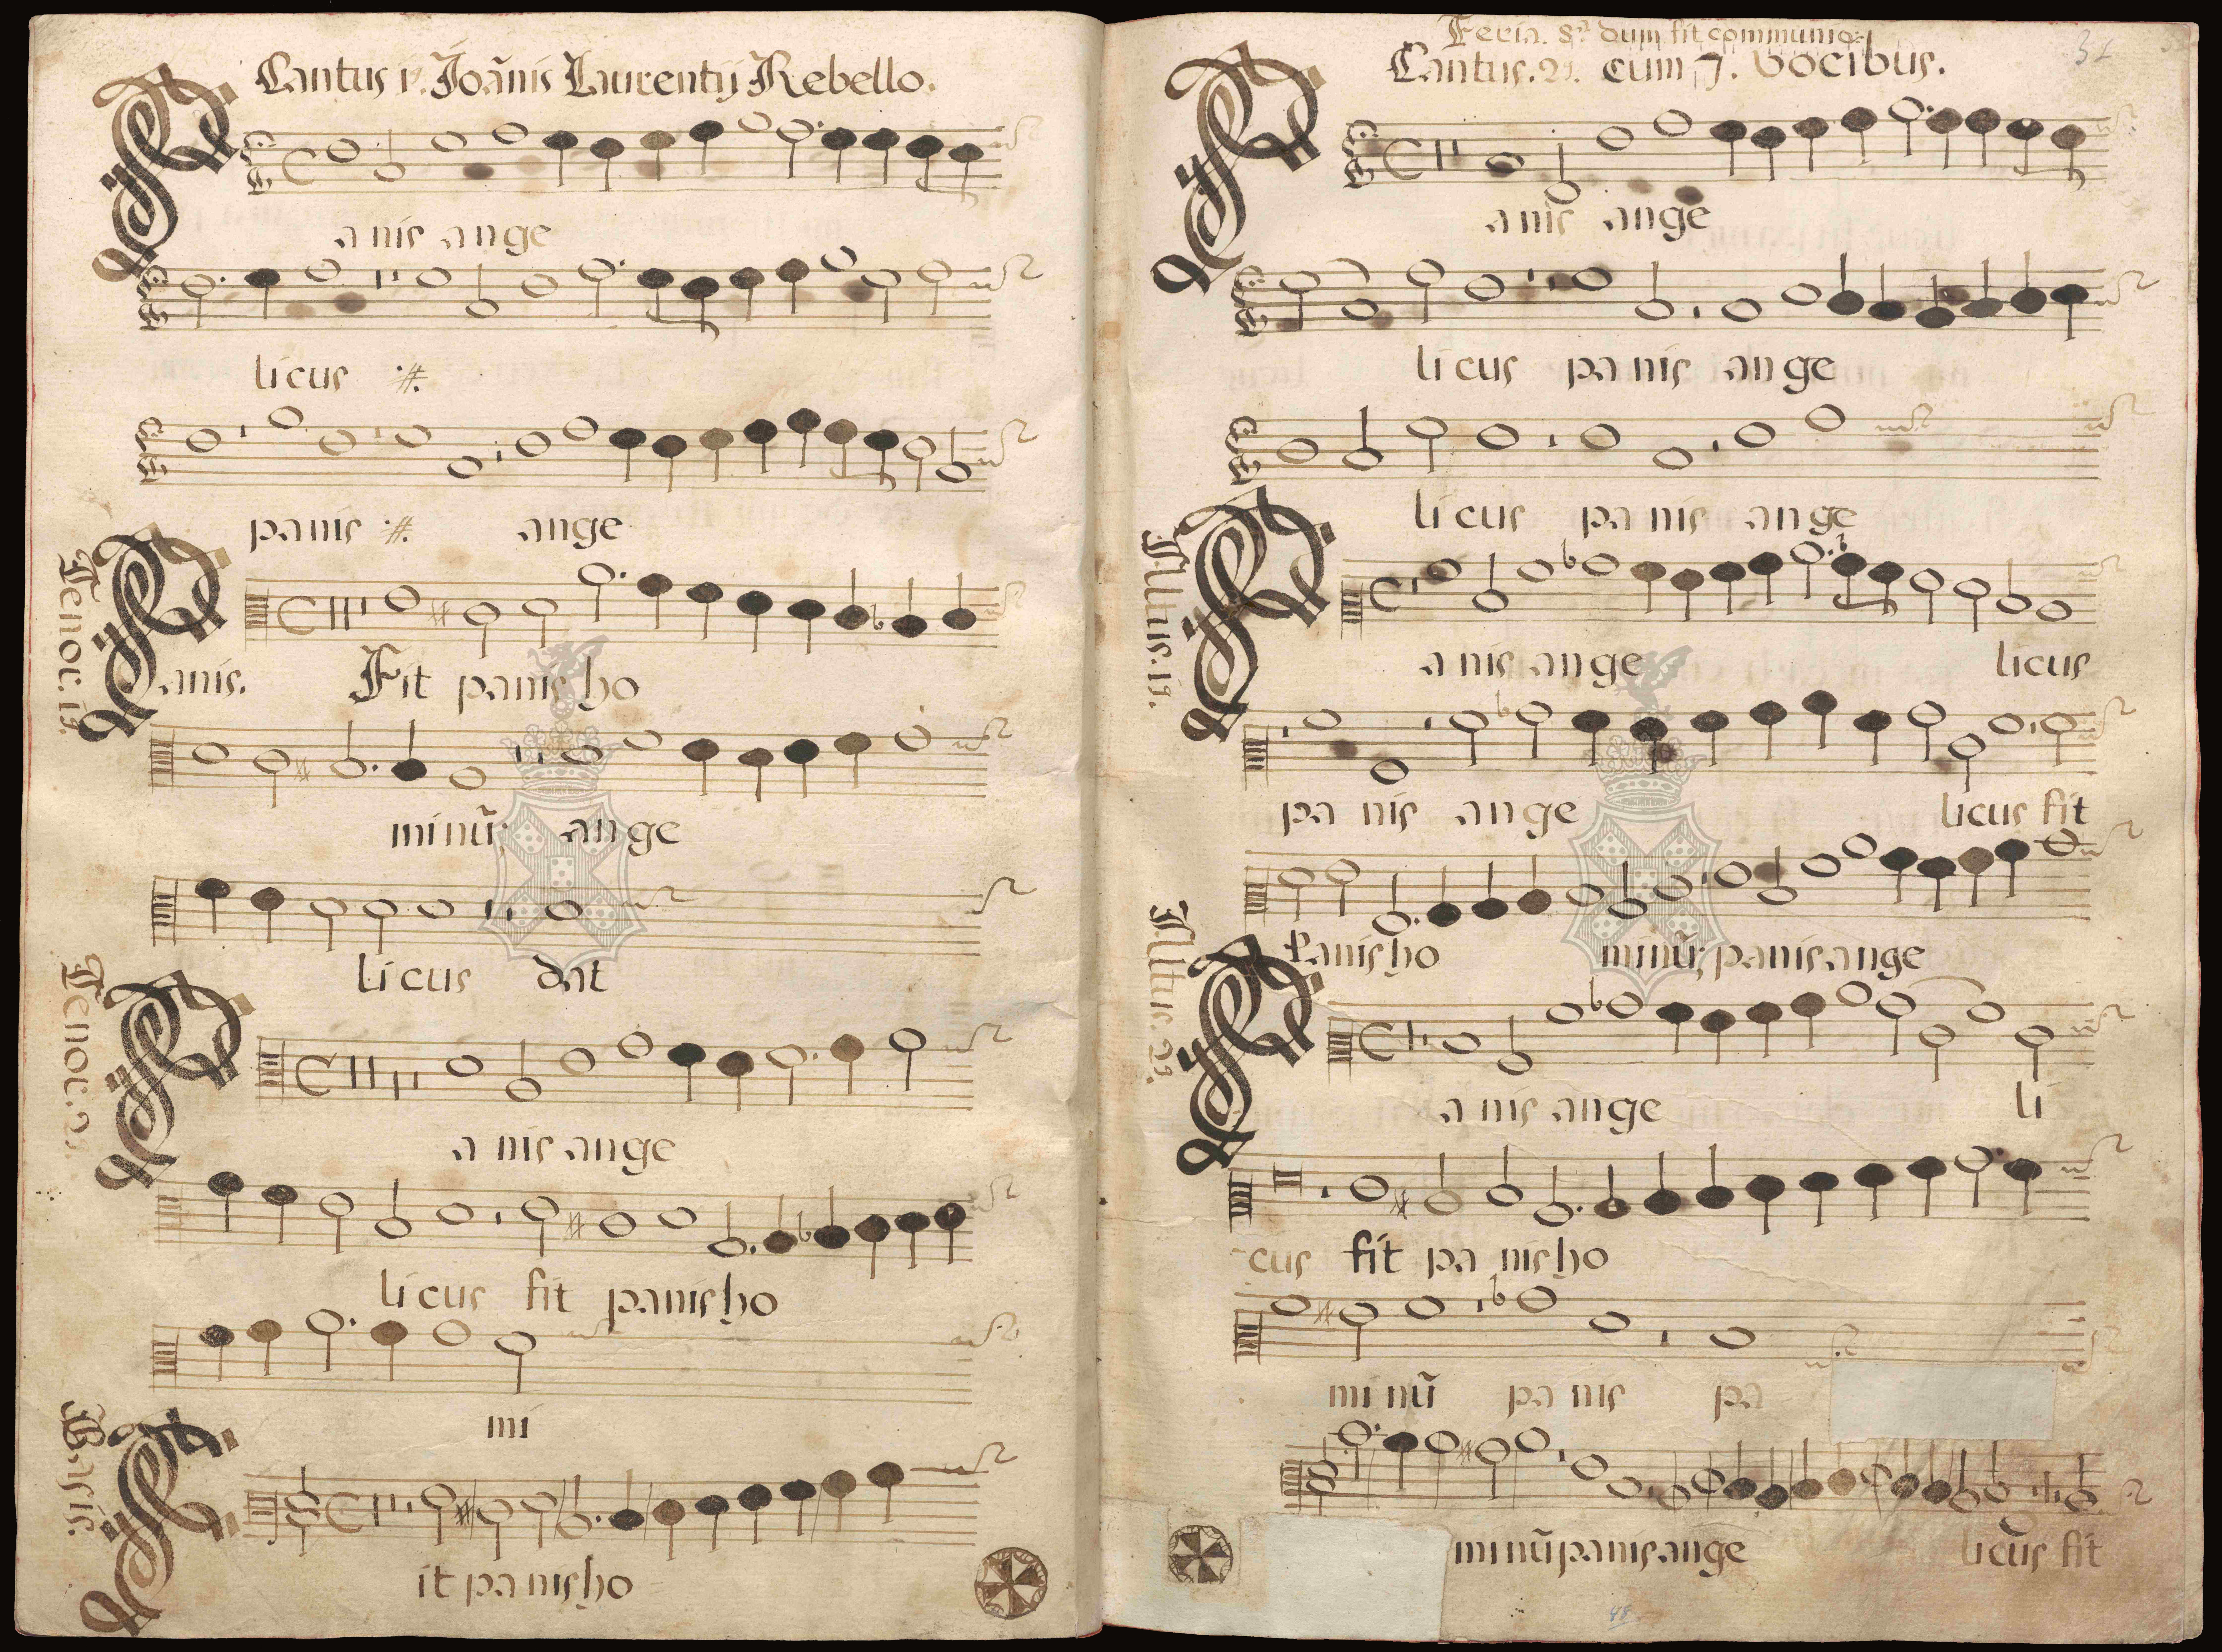 Cantus 1ˢ. Joãnis Laurentij Rebello.
anis ange
licus :#.
panis :#. ange
Tenor. 1ˢ.
anis. Fit panis ho
minũ; ange
licus dat
Tenor. 2ˢ.
anis ange
licus fit panis ho
mi
Basis.
it panis ho
Feria. 5ª dum fit communio
Cantus. 2ˢ. cum 7. vocibus.
31
anis ange
licus panis ange
licus panis ange
Altus. 1ˢ.
anis ange licus
panis ange licus fit
Panis ho minũ; panis ange
Altus. 2ˢ.
anis ange li
cus fit panis ho
minũ panis pa
minũ panis ange licus fit
48